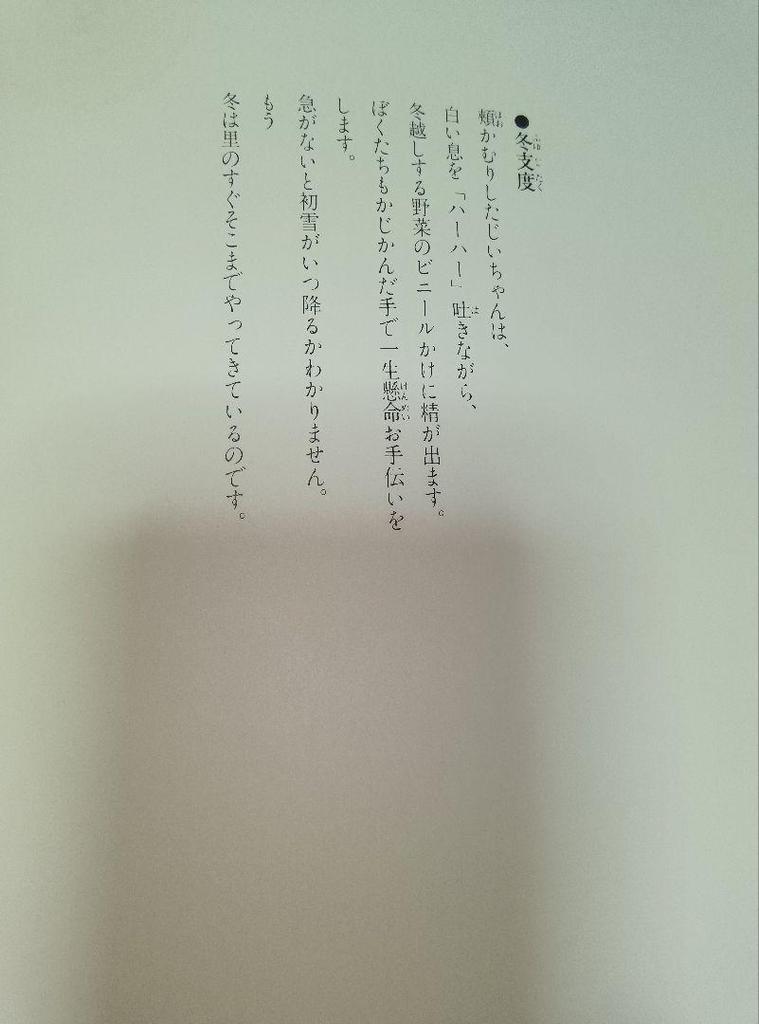 ●冬支度
頬かむりしたじいちゃんは、
白い息を「ハーハー」吐きながら、
冬越しする野菜のビニールかけに精が出ます。
ぼくたちもかじかんだ手で一生懸命お手伝いを
します。
急がないと初雪がいつ降るかわかりません。
もう
冬は里のすぐそこまでやってきているのです。